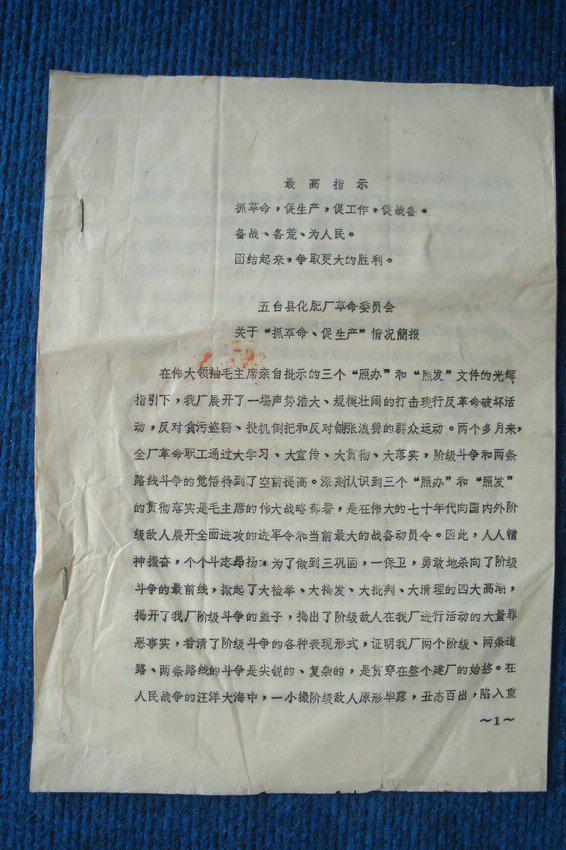 最高指示
抓革命，促生产，促工作，促战备。
备战、备荒、为人民。
团结起来，争取更大的胜利。
五台县化肥厂革命委员会
关于“抓革命、促生产”情况簡报
在伟大领袖毛主席亲自批示的三个“照办”和“照发”文件的光辉
指引下，我厂展开了一場声势浩大、规模壮阔的打击现行反革命破坏活
动，反对贪污盗窃、投机倒把和反对铺张浪费的群众运动。两个多月来，
全厂革命职工通过大学习、大宣传、大贯彻、大落实，阶级斗争和两条
路线斗争的觉悟得到了空前提高。深刻认识到三个“照办”和“照发”
的贯彻落实是毛主席的伟大战略部署，是在伟大的七十年代向国内外阶
级敌人展开全面进攻的进军令和当前最大的战备动员令。因此，人人精
神振奋，个个斗志昂扬，为了做到三巩固，一保卫，勇敢地杀向了阶级
斗争的最前线，掀起了大检举、大揭发、大批判、大清理的四大高潮，
揭开了我厂阶级斗争的盖子，揭出了阶级敌人在我厂进行活动的大量罪
恶事实，看清了阶级斗争的各种表现形式，证明我厂两个阶级、两条道
路、两条路线的斗争是尖锐的、复杂的，是贯穿在整个建厂的始终。在
人民战争的汪洋大海中，一小撮阶级敌人原形毕露，丑态百出，陷入重
～1～